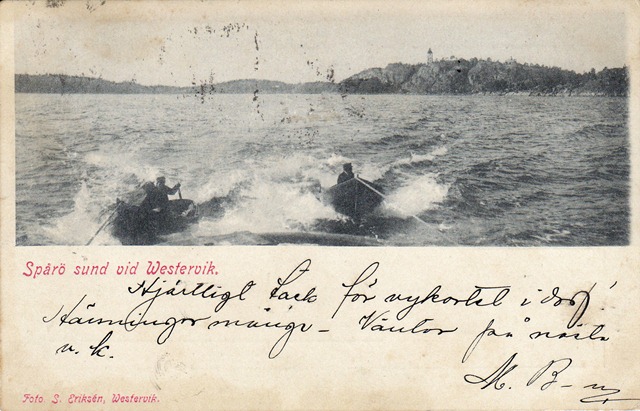 Spårö sund vid Westervik.
Hjärtligt tack för vykortet i dag!
Hälsningar många – Väntar på nästa
v. k.
M. B–n
Foto S. Eriksén, Westervik.